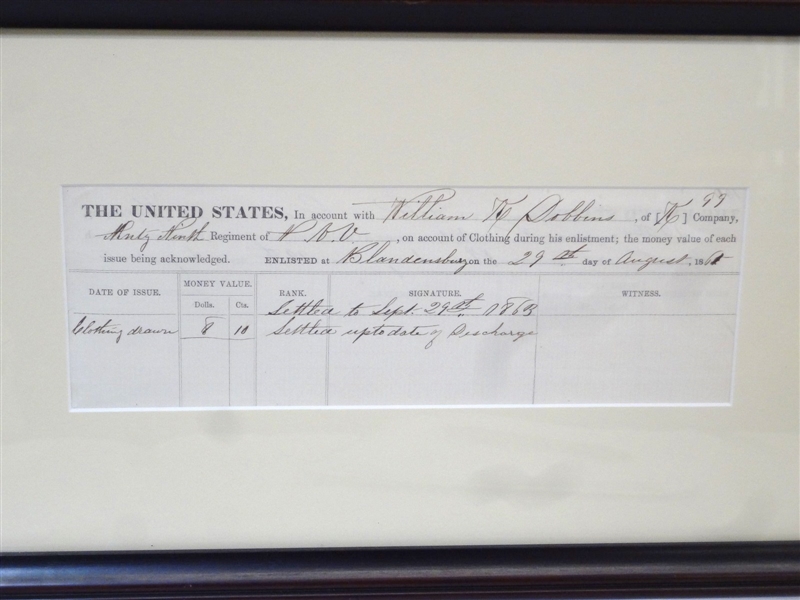 THE UNITED STATES, In account with William K Dobbins, of [K] Company, 99
Ninth Regiment of P. V., on account of Clothing during his enlistment; the money value of each
issue being acknowledged. ENLISTED at Blandensburg on the 29th day of August, 1861
DATE OF ISSUE. MONEY VALUE. RANK. SIGNATURE. WITNESS.
Dolls. Cts.
Settled to Sept. 29th 1863
Clothing drawn 8 10 Settled up to date of Discharge